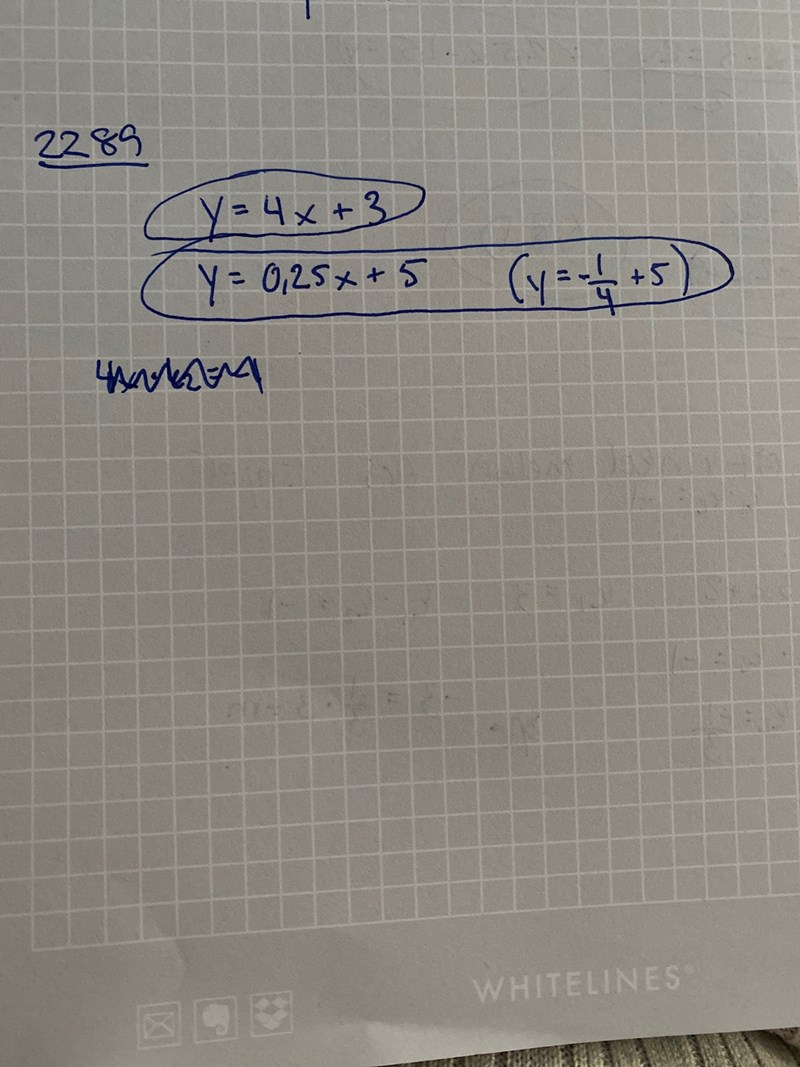 2289
y = 4x + 3
y = 0,25x + 5 (y = -1/4 + 5)
WHITELINES®